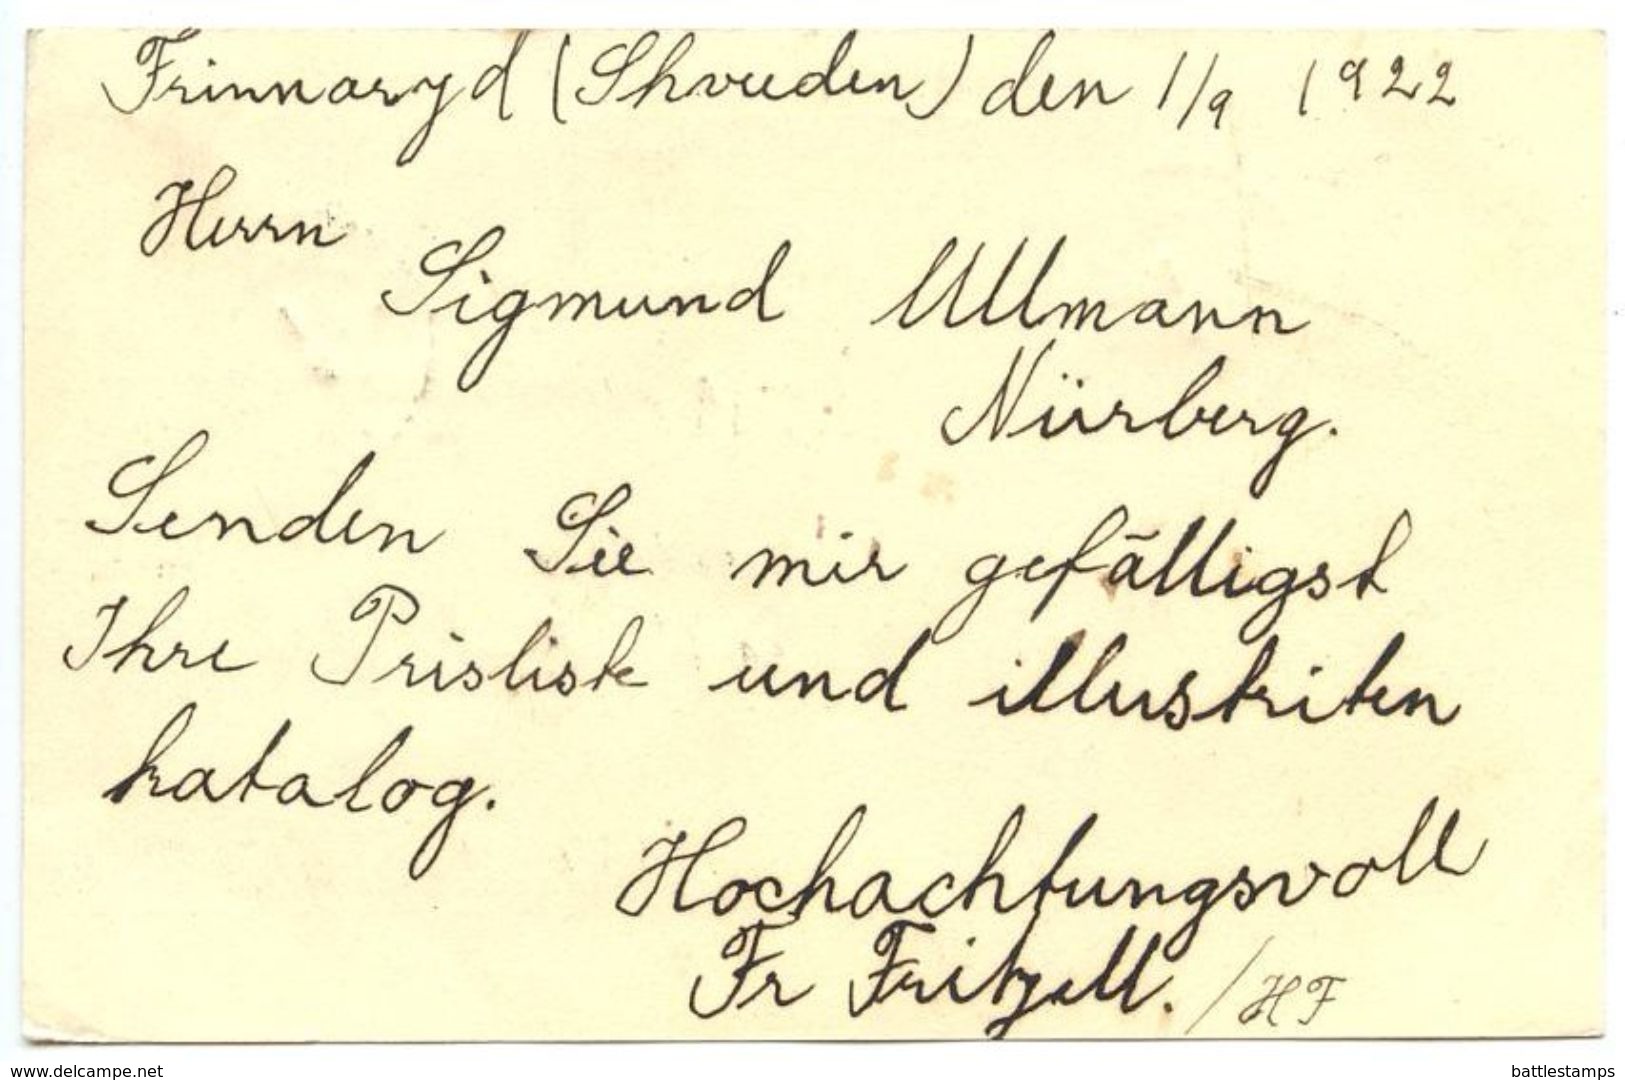 Frinnaryd (Shveden) den 1/9 1922
Herrn
Sigmund Ullmann
Nürberg.
Senden Sie mir gefälligst
Ihre Prisliste und illustriten
katalog.
Hochachtungsvoll
Fr Fritzell. /HF
www.delcampe.net
battlestamps